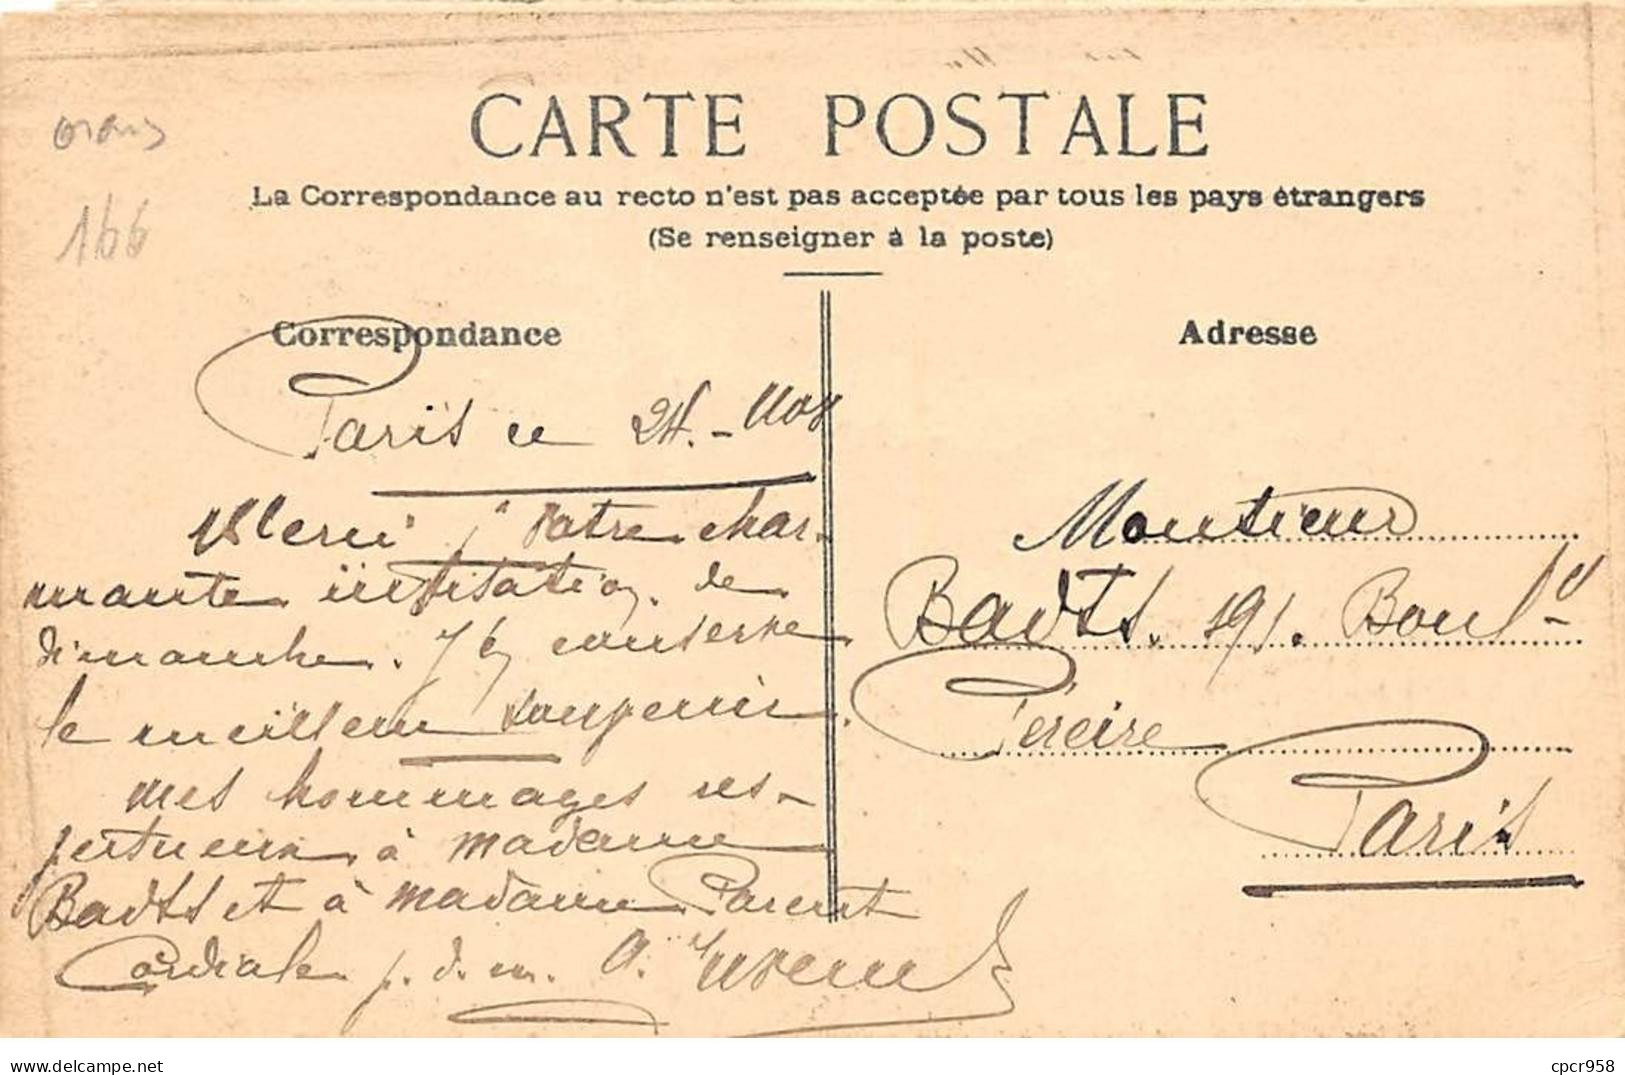 CARTE POSTALE
La Correspondance au recto n'est pas acceptée par tous les pays étrangers
(Se renseigner à la poste)
166
Correspondance
Adresse
Paris ce 24 - Nov
Merci votre char-
mante invitation de
dimanche. J'en conserve
le meilleur souvenir.
Mes hommages res-
pectueux à madame
Badts et à madame Parent
Cordiale p. d. m. A.
Monsieur
Badts. 191. Boul^d
Péreire
Paris
cpcr958